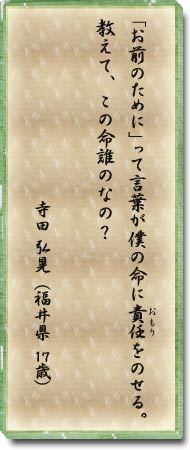 「お前のために」って言葉が僕の命に責任をのせる。
おもり
教えて、この命誰のなの？
寺田 弘晃 (福井県 17歳)